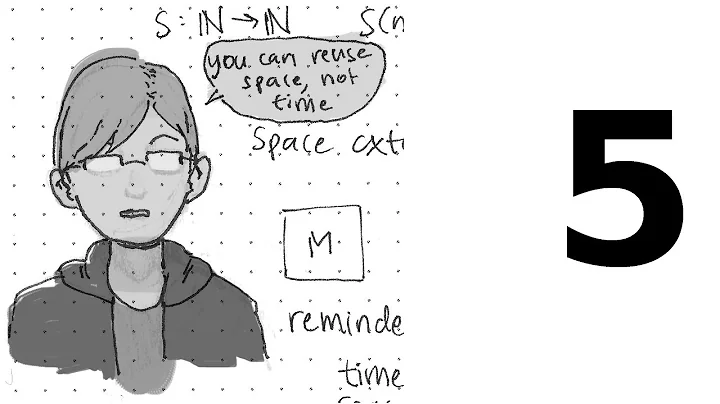 S: ℕ→ℕ S(n
you can reuse
space, not
time
Space ext
M
reminde
time
5